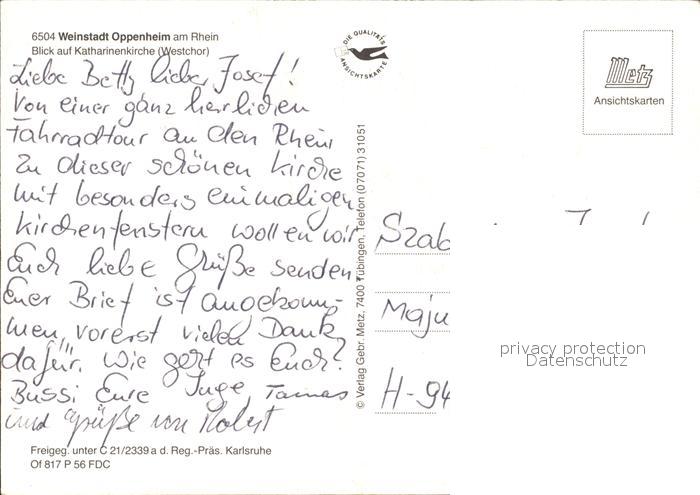 6504 Weinstadt Oppenheim am Rhein
Blick auf Katharinenkirche (Westchor)
DIE QUALITÄTS ANSICHTSKARTE
Metz
Ansichtskarten
Liebe Betty lieber Josef!
Von einer ganz herrlichen
Fahrradtour an den Rhein
zu dieser schönen Kirche
mit besonders einmaligen
Kirchenfenstern wollen wir
Euch liebe Grüße senden.
Euer Brief ist angekom-
men, vorerst vielen Dank
dafür. Wie geht es Euch?
Bussi Eure Inge, Tamas
und Grüße von Robert
© Verlag Gebr. Metz, 7400 Tübingen, Telefon (07071) 31051
Szab
Maju
H-94
privacy protection
Datenschutz
Freigeg. unter C 21/2339 a d. Reg.-Präs. Karlsruhe
Of 817 P 56 FDC